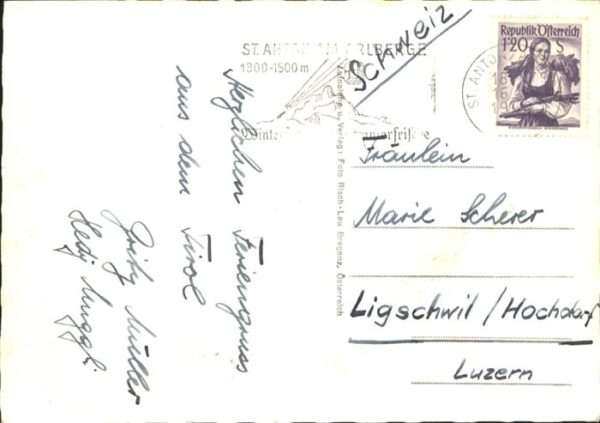 Schweiz
Republik Österreich
1.20 S
ST. ANTON AM ARLBERG
1300-1500 m
ST. ANTO
Winter
Herzlichen Feriengruss
aus dem Tirol
Fritz Müller
Hedy Muggli
Aufnahme u. Verlag: Foto Risch-Lau Bregenz, Österreich
Fräulein
Marie Scherer
Ligschwil / Hochdorf
Luzern